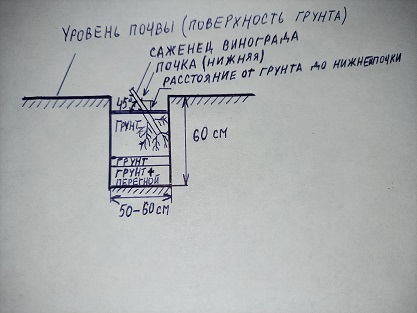 УРОВЕНЬ ПОЧВЫ (ПОВЕРХНОСТЬ ГРУНТА)
САЖЕНЕЦ ВИНОГРАДА
ПОЧКА (НИЖНЯЯ)
РАССТОЯНИЕ ОТ ГРУНТА ДО НИЖНЕЙ ПОЧКИ
45°
ГРУНТ
60 СМ
ГРУНТ
ГРУНТ +
ПЕРЕГНОЙ
50-60 СМ